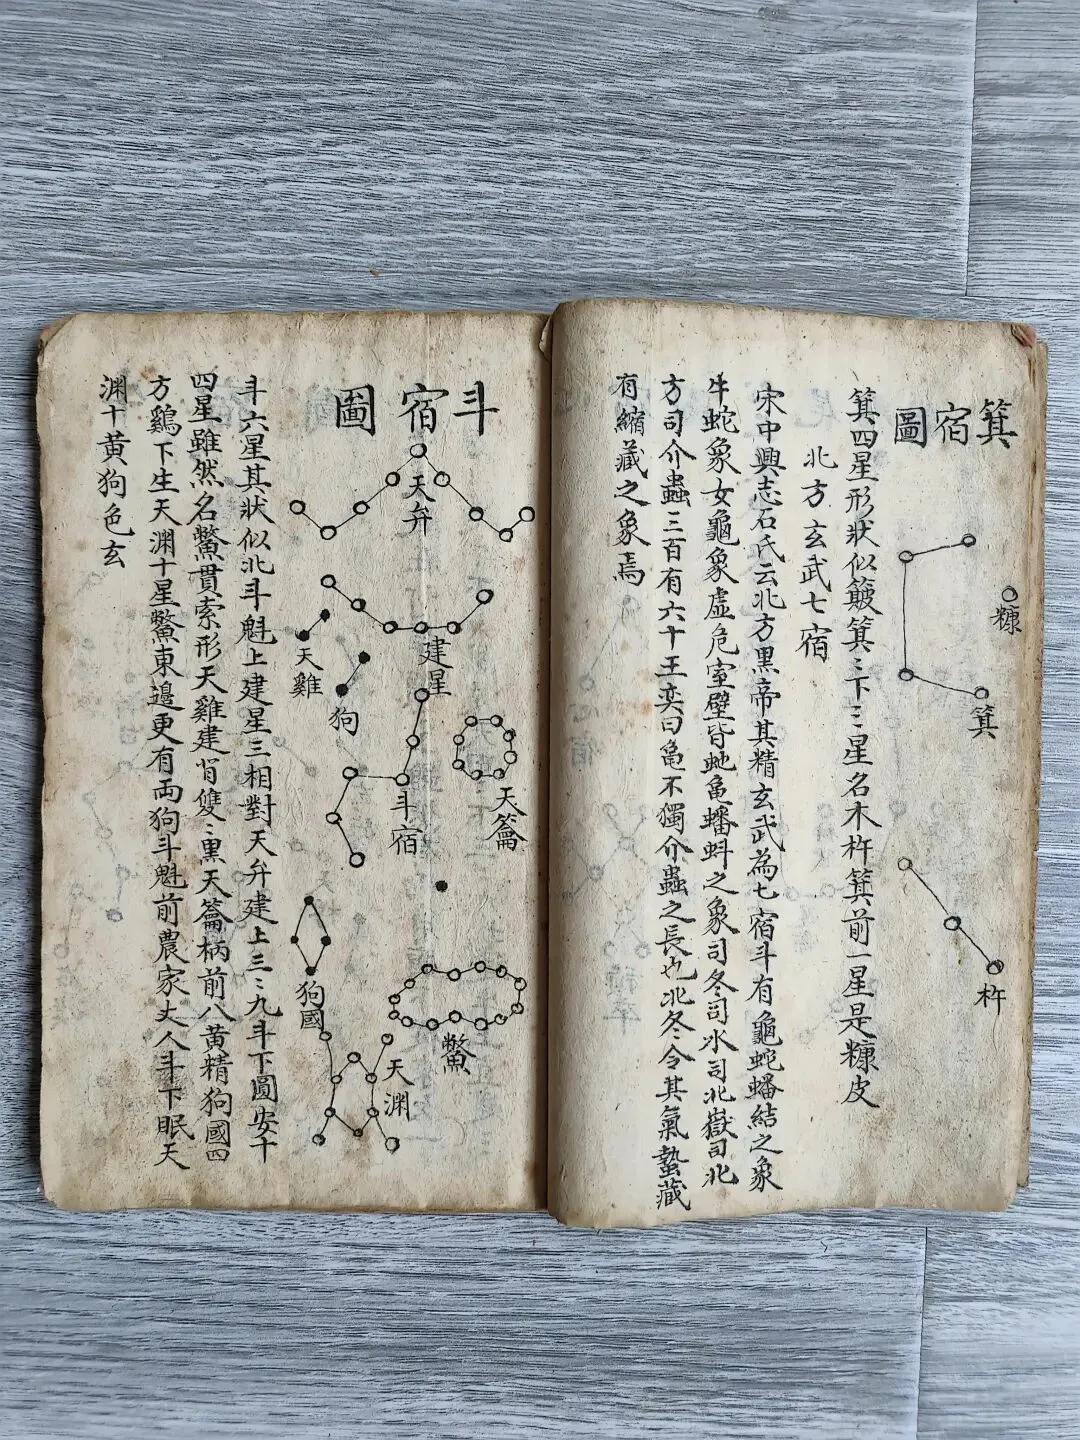 箕宿圖
糠
箕
杵
箕四星形狀似簸箕〻下三星名木杵箕前一星是糠皮
北方玄武七宿
宋中興志石氏云北方黑帝其精玄武為七宿斗有龜蛇蟠結之象
牛蛇象女龜象虛危室壁皆虵亀蟠蚪之象司冬司水司北嶽司北
方司介蟲三百有六十王奕曰亀不獨介蟲之長也北冬令其氣蟄藏
有縮藏之象焉
斗宿圖
天弁
建星
天雞
狗
斗宿
天籥
狗國
鱉
天渊
斗六星其狀似北斗魁上建星三相對天弁建上三〻九斗下圓安十
四星雖然名鱉貫索形天雞建背雙〻黑天籥柄前八黃精狗國四
方鷄下生天渊十星鱉東邊更有両狗斗魁前農家丈人斗下眠天
渊十黃狗色玄